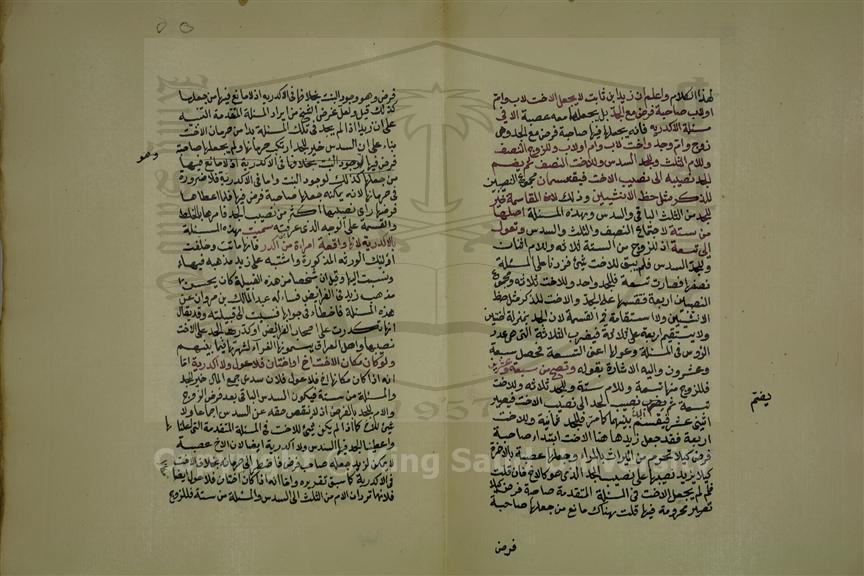 لهذا الكلام واعلم ان زيد ابن ثابت لا يجعل الاخت لاب وام
او لاب صاحبة فرض مع الجد بل يجعلها معه عصبة الا في
مسئلة الاكدرية فانه يجعلها فيها صاحبة فرض مع الجد وهي
زوج وام وجد واخت لاب وام او لاب وللزوج النصف
وللام الثلث وللجد السدس وللاخت النصف ثم يضم
الجد نصيبه الى نصيب الاخت فيقسمان مجموع النصيبين
للذكر مثل حظ الانثيين وذلك لان المقاسمة خير
للجد من الثلث الباقي والسدس وبهذه المسئلة اصلها
من ستة لاجتماع النصف والثلث والسدس وتعول
الى تسعة اذ للزوج من الستة ثلاثة وللام اثنان
وللجد السدس فلم يبق للاخت شئ فزدنا على المسئلة
نصفها فصارت تسعة فللجد واحد وللاخت ثلاثة ومجموع
النصيبين اربعة فنقسمها على الجد والاخت للذكر مثل حظ
الانثيين ولا استقامة في القسمة لان الجد بمنزلة اختين
ولا يستقيم اربعة على ثلاثة فيضرب الثلاثة التي هي عدد
الرؤس في المسئلة وعولها اعنى التسعة تحصل سبعة
وعشرون واليه الاشارة بقوله وتصح من سبعة وعشرين
فللزوج منها تسعة وللام ستة وللجد ثلاثة وللاخت
تسعة ثم يضم نصيب الجد الى نصيب الاخت فيصير
اثنى عشر فيقسم بينهما كما مر فللجد ثمانية وللاخت
اربعة فقد جعل زيد ها هنا الاخت ابتداء صاحبة
فرض كيلا تحرم من الميراث بالمرة وجعلها عصبة بالاخرة
كيلا يزيد نصيبها على نصيب الجد الذي هو كالاخ فان قلت
فلم لم يجعل الاخت في المسئلة المتقدمة صاحبة فرض كيلا
تصير محرومة فيها قلت هناك مانع من جعلها صاحبة
فرض
يضم
فرض وهو وجود البنت بخلافها في الاكدرية اذ لا مانع فيها من جعلها
كذلك قيل ولعل غرض الشيخ من ايراد المسئلة المتقدمة التنبيه
على ان زيدا اذ الم يجد في تلك المسئلة بدا من حرمان الاخت
بناء على ان السدس خير للجد ارتكب حرمانها ولم يجعلها صاحبة
فرض فيها لوجود البنت بخلافها في الاكدرية اذ لا مانع فيها
من جعلها كذلك لوجود البنت واما في الاكدرية فلا ضرورة
في حرمانها لانه يمكنه جعلها صاحبة فرض فيها فلما اعطاها
فرضها راى نصيبها اكثر من نصيب الجد فامرها بالخلط
والقسمة على الوجه الذي عرفته سميت بهذه المسئلة
بالاكدرية لانها واقعة امراة من اكدر فانها ماتت وخلفت
اولئك الورثة المذكورة واشتبه على زيد مذهبه فيها
ونسبت اليها وقيل ان شخصا من هذه القبيلة كان يحسن
مذهب زيد في الفرايض فساله عبد الملك بن مروان عن
هذه المسئلة فاخطاء في جوابها فنسبت الى قبيلته وقد يقال
انها تكدرت على اصحاب الفرائض او كدرية الجد على الاخت
نصيبها واهل العراق يسمونها الغراء لشهرتها فيما بينهم
ولو كان مكان الاخت اخ او اختان فلا عول ولا اكدرية اما
انه اذا كان مكانها اخ فلا عول فلان سدس جميع المال خير للجد
والمسئلة من ستة فيكون السدس الباقي بعد فرض الزوج
والام للجد بالفرض اذ لا ينقص حقه عن السدس اجماعا ولا
شئ للاخ كما اذ الم يكن شئ للاخت في المسئلة المتقدمة
واعطينا الجد فيها السدس ولا اكدرية ايضا لان الاخ عصبة
لا يمكن لزيد جعله صاحب فرض فاضطر الى حرمانه بخلاف الاخت
في الاكدرية كما سبق تقريره واما اذا كان اختان فلا عول ايضا
فلانها تردان الام من الثلث الى السدس والمسئلة من ستة فللزوج
وهو